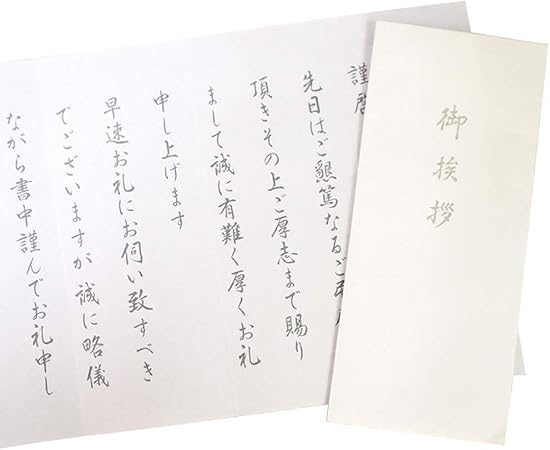 謹啓
先日はご懇篤なるご弔
頂きその上ご厚志まで賜り
まして誠に有難く厚くお礼
申し上げます
早速お礼にお伺い致すべき
でございますが誠に略儀
ながら書中謹んでお礼申し
御挨拶